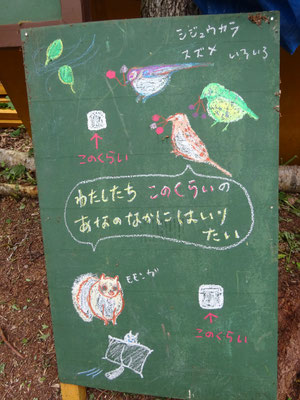 シジュウカラ
スズメ いろいろ
このくらい
わたしたち このくらいの
あなのなかにはいり
たい
モモンガ
このくらい